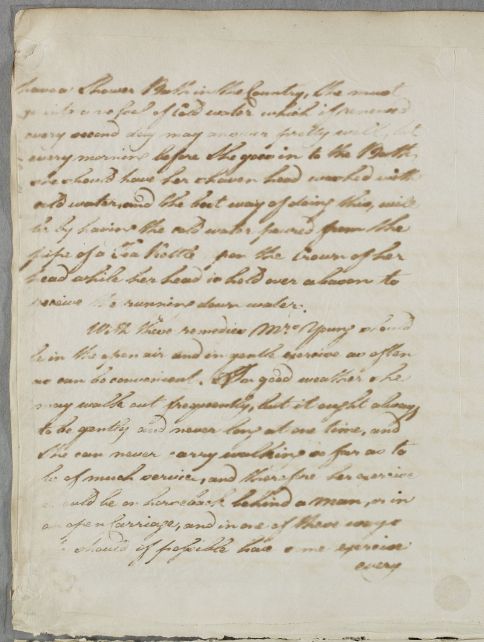 have a Shower Bath in the Country, She must
go into a of Cold water which if renewed
every second day may answer pretty well, but
every morning before She goes in to the Bath
she should have her shaven head washed with
cold water, and the best way of doing this, will
be by having the cold water poured from the
pipe of a Tea Kettle on the Crown of her
head while her head is held over a bason to
receive the running down water.
With these remedies Mrs. Young should
be in the open air and in gentle exercise as often
as can be convenient. In good weather she
may walk out frequently, but it ought always
to be gently and never long at one time, and
She can never carry walking so far as to
be of much service, and therefore her exercise
should be on horseback behind a man, or in
an open Carriage, and in one of these ways
should if possible have some exercise
every